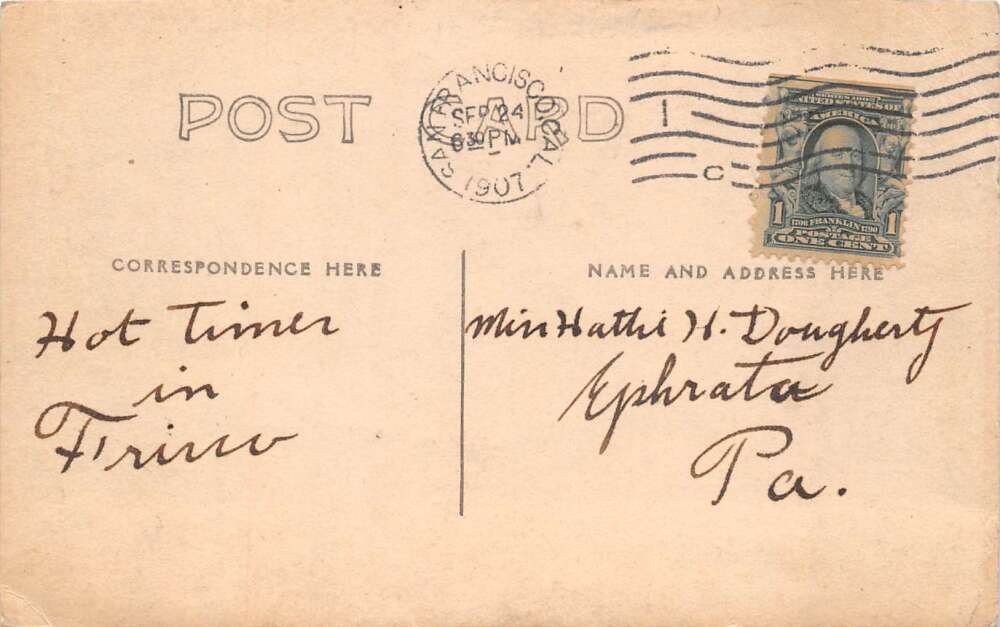 POST CARD
SAN FRANCISCO, CAL.
SEP 24
6 30 PM
1907
1
C
SERIES 1902
UNITED STATES OF
AMERICA
1 1
1706 FRANKLIN 1790
POSTAGE
ONE CENT
CORRESPONDENCE HERE
Hot Times
in
Frisco
NAME AND ADDRESS HERE
Miss Hattie H. Dougherty
Ephrata
Pa.